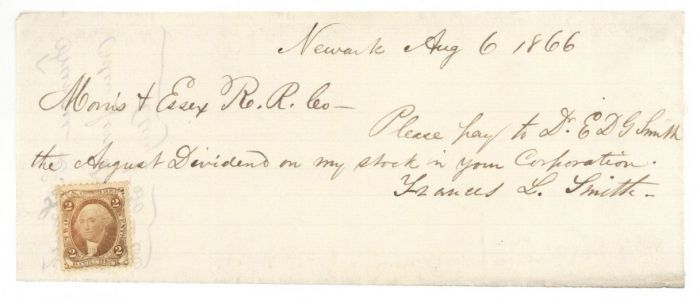 Newark Aug 6 1866
Morris & Essex R. R. Co —
Please pay to Dr. E D G Smith
the August Dividend on my stock in your Corporation.
Frances L. Smith —
2 2
2 2